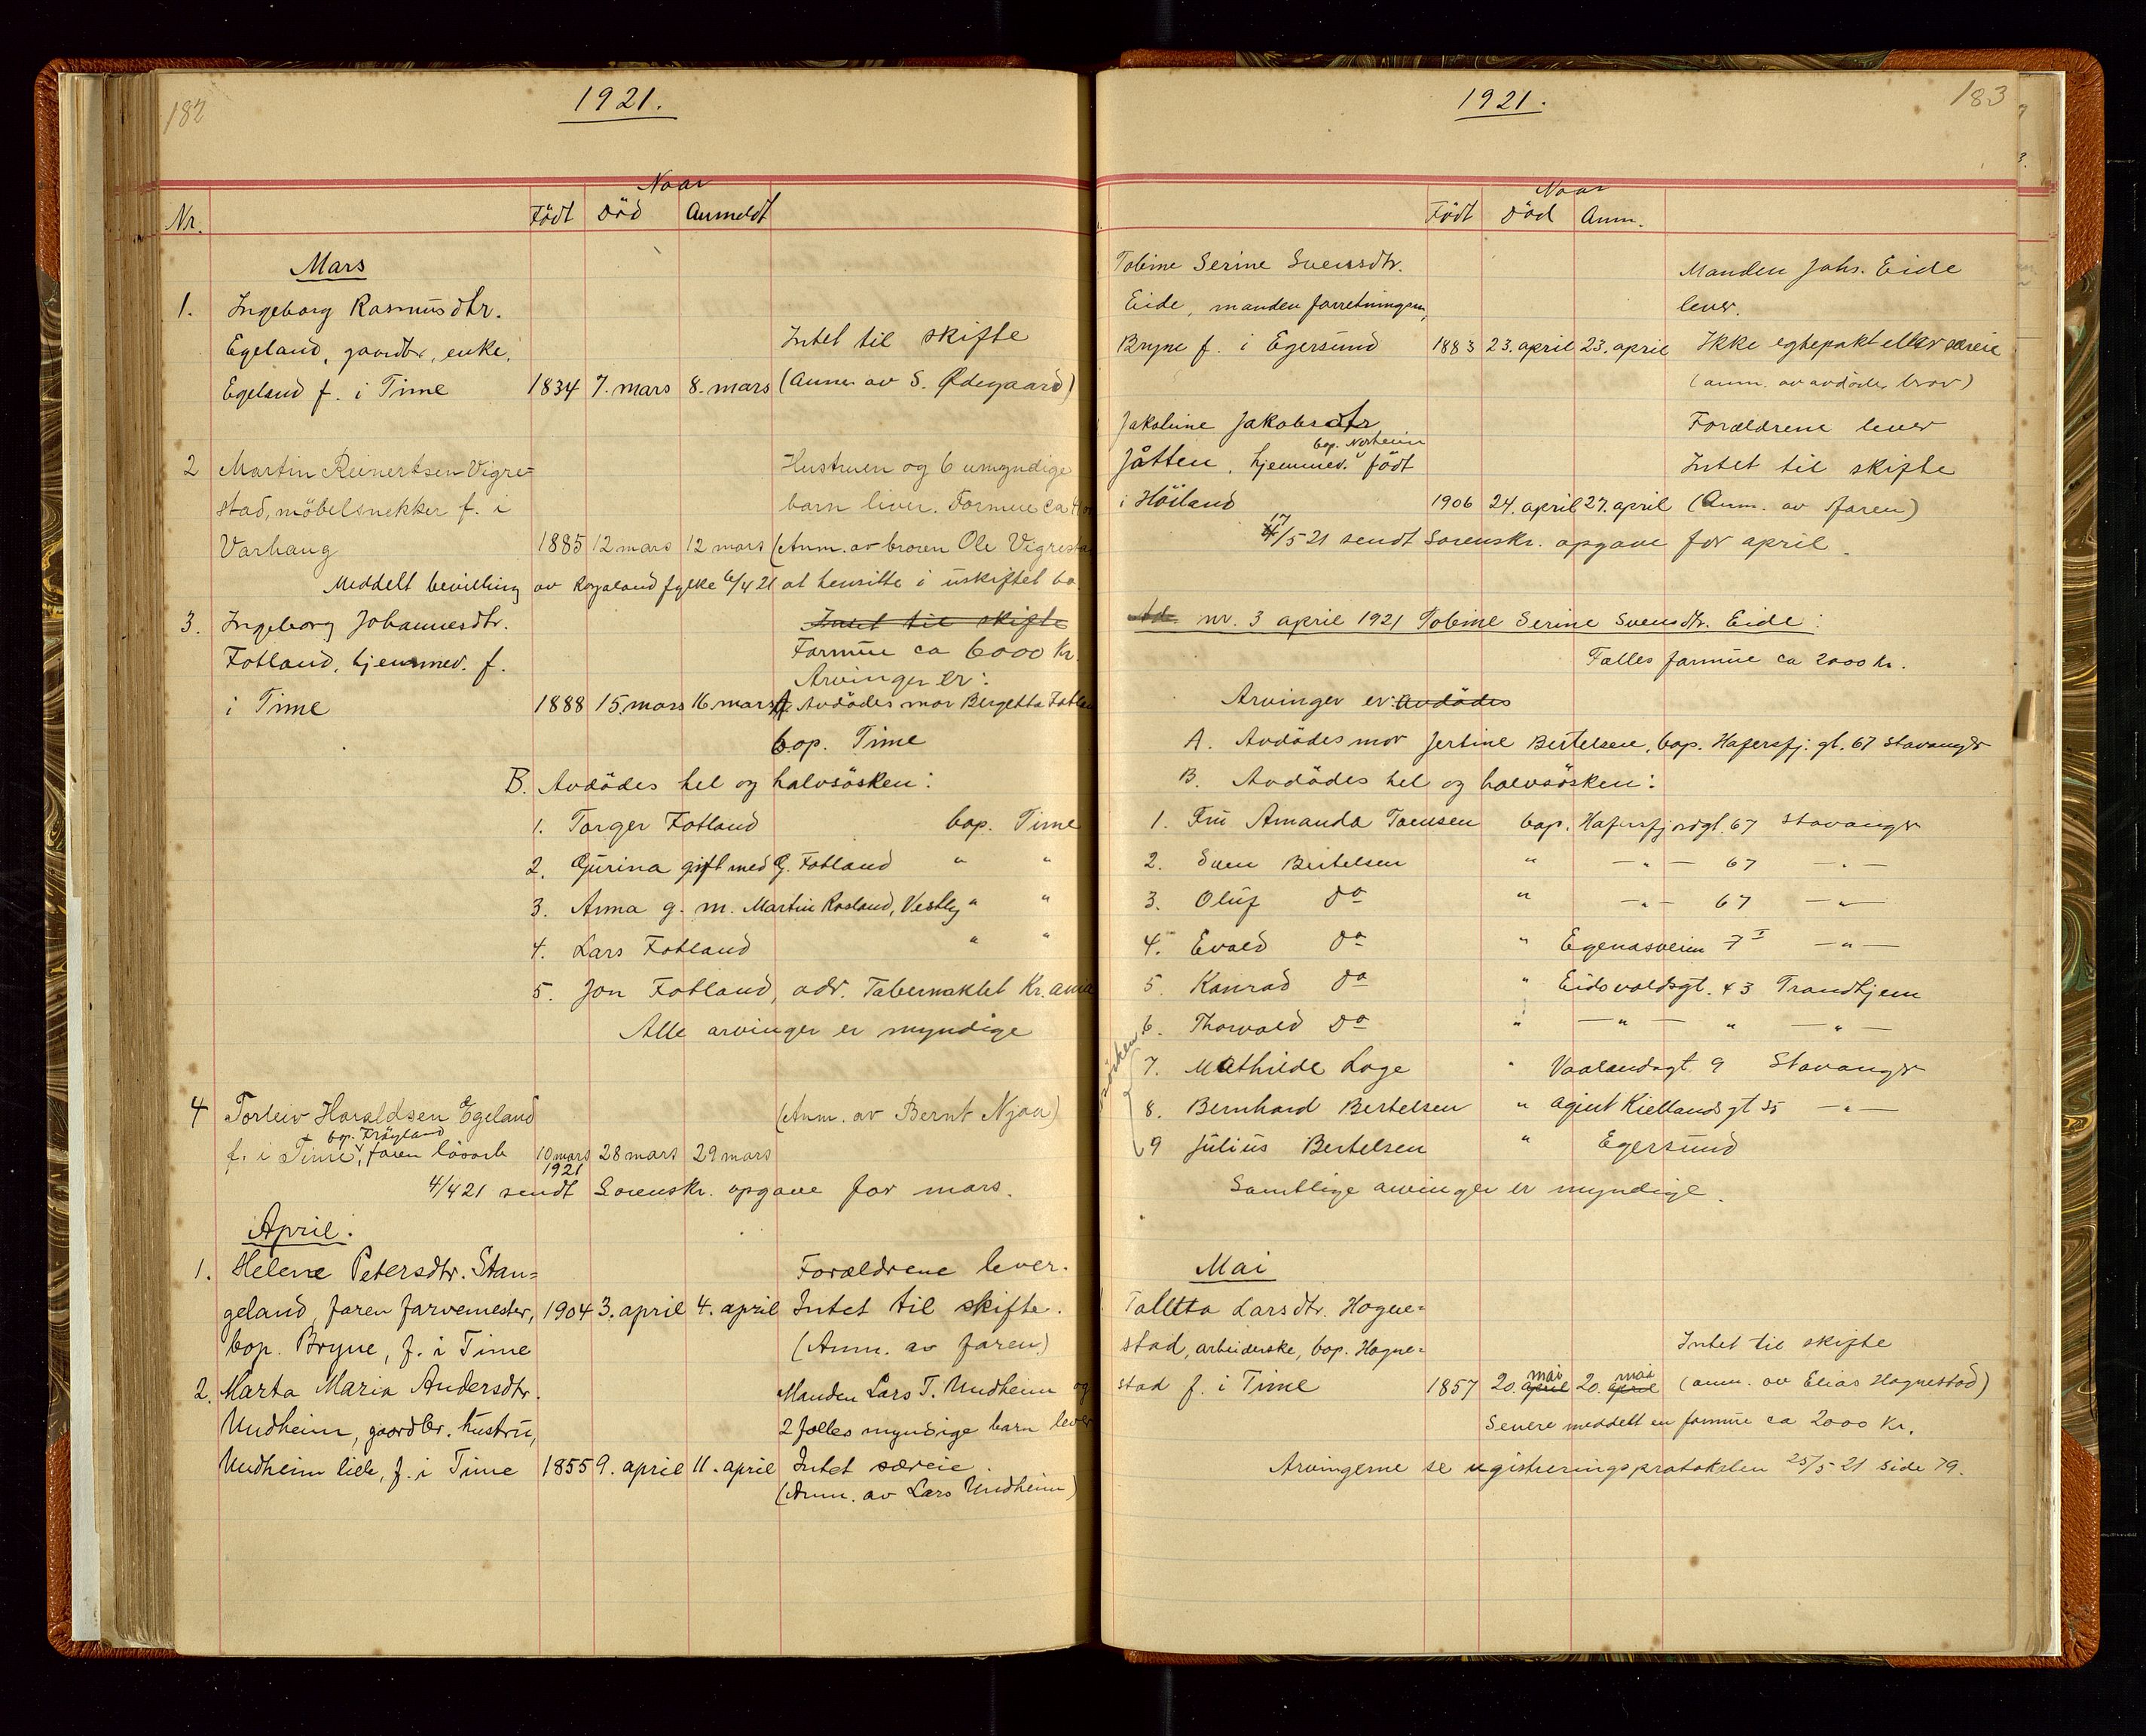 182
1921.
Naar
Nr. Födt Död Anmeldt
Mars
1. Ingeborg Rasmusdtr.
Egeland, gaardbr. enke, Intet til skifte
Egeland f. i Time 1834 7. mars 8. mars (Anm. av S. Ødegaard)
2 Martin Reinertsen Vigre= Hustruen og 6 umyndige
stad, möbelsnekker f. i barn liver. Formue ca
Varhaug 1885 12 mars 12 mars (Anm. av broren Ole Vigresta
Meddelt bevilling av Rogaland fylke 6/4 21 at hensitte i uskiftet bo.
3. Ingeborg Johannesdtr. Intet til skifte
Fotland, hjemmev. f. Formue ca 6000 Kr.
Arvinger er:
i Time 1888 15. mars 16 mars A. Avdödes mor Bergetta Fotlan
bop. Time
B. Avdödes hel og halvsösken:
1. Torger Fotland bop. Time
2. Gurina gift med G. Fotland " "
3. Anna g. m. Martin Rosland, Vestly " "
4. Lars Fotland " "
5. Jon Fotland, adr. Tabernaklet Kr.ania
Alle arvinger er myndige
4 Torleiv Haraldsen Egeland (Anm. av Bernt Njaa)
bop. Fröyland
f. i Time, faren lösarb 10 mars 28 mars 29 mars
1921
4/4 21 sendt Sorenskr. opgave for mars.
April.
1. Helene Petersdtr. Stan= Forældrene lever.
geland, faren farvemester, 1904 3. april 4. april Intet til skifte.
bop. Bryne, f. i Time (Anm. av faren)
2. Marta Maria Andersdtr. Manden Lars T. Undheim og
Undheim, gaardbr. hustru, 2 fælles myndige barn lever
Undheim lille, f. i Time 1855 9. april 11. april Intet særeie.
(Anm. av Lars Undheim)
1921.
183
Naar
Födt Död Anm.
Tobine Serine Svensdtr. Manden Johs. Eide
Eide, manden forretningsm, lever.
Bryne f. i Egersund 1883 23. april 23. april Ikke egtepakt eller særeie
(anm. av avdödes bror)
Jakobine Jakobsdtr Forældrene lever
bop. Norheim
Jåtten, hjemmev. födt Intet til skifte
i Höiland 1906 24. april 27. april (Anm. av faren)
17/5 21 sendt Sorenskr. opgave for april.
nr. 3 april 1921 Tobine Serine Svensdtr. Eide:
Fælles formue ca 2000 kr.
Arvinger er: Avdödes
A. Avdödes mor Jertine Bertelsen, bop. Hafersfj. gt. 67 Stavanger
B. Avdödes hel og halvsösken:
1. Fru Amanda Tomsen bop. Hafersfjordgt. 67 Stavanger
2. Sven Bertelsen " — " — 67 — " —
3. Oluf do " — " — 67 — " —
4. Evald do " Egenæsveien 7 I — " —
5. Konrad do " Eidsvoldsgt. 43 Trondhjem
6. Thorvald do " — " — " — " —
7. Mathilde Loge " Vaalandsgt. 9 Stavanger
söskens
8. Bernhard Bertelsen " agent Kiellandsgt 35 — " —
9 Julius Bertelsen " Egersund
Samtlige arvinger er myndige.
Mai
Taletta Larsdtr. Hogne=
stad, arbeiderske, bop. Hogne= Intet til skifte
mai mai
stad f. i Time 1857 20. april 20. april (anm. av Elias Hognestad)
Senere meddelt en formue ca 2000 Kr.
Arvingerne se registreringsprotokolen 25/5 21 side 79.